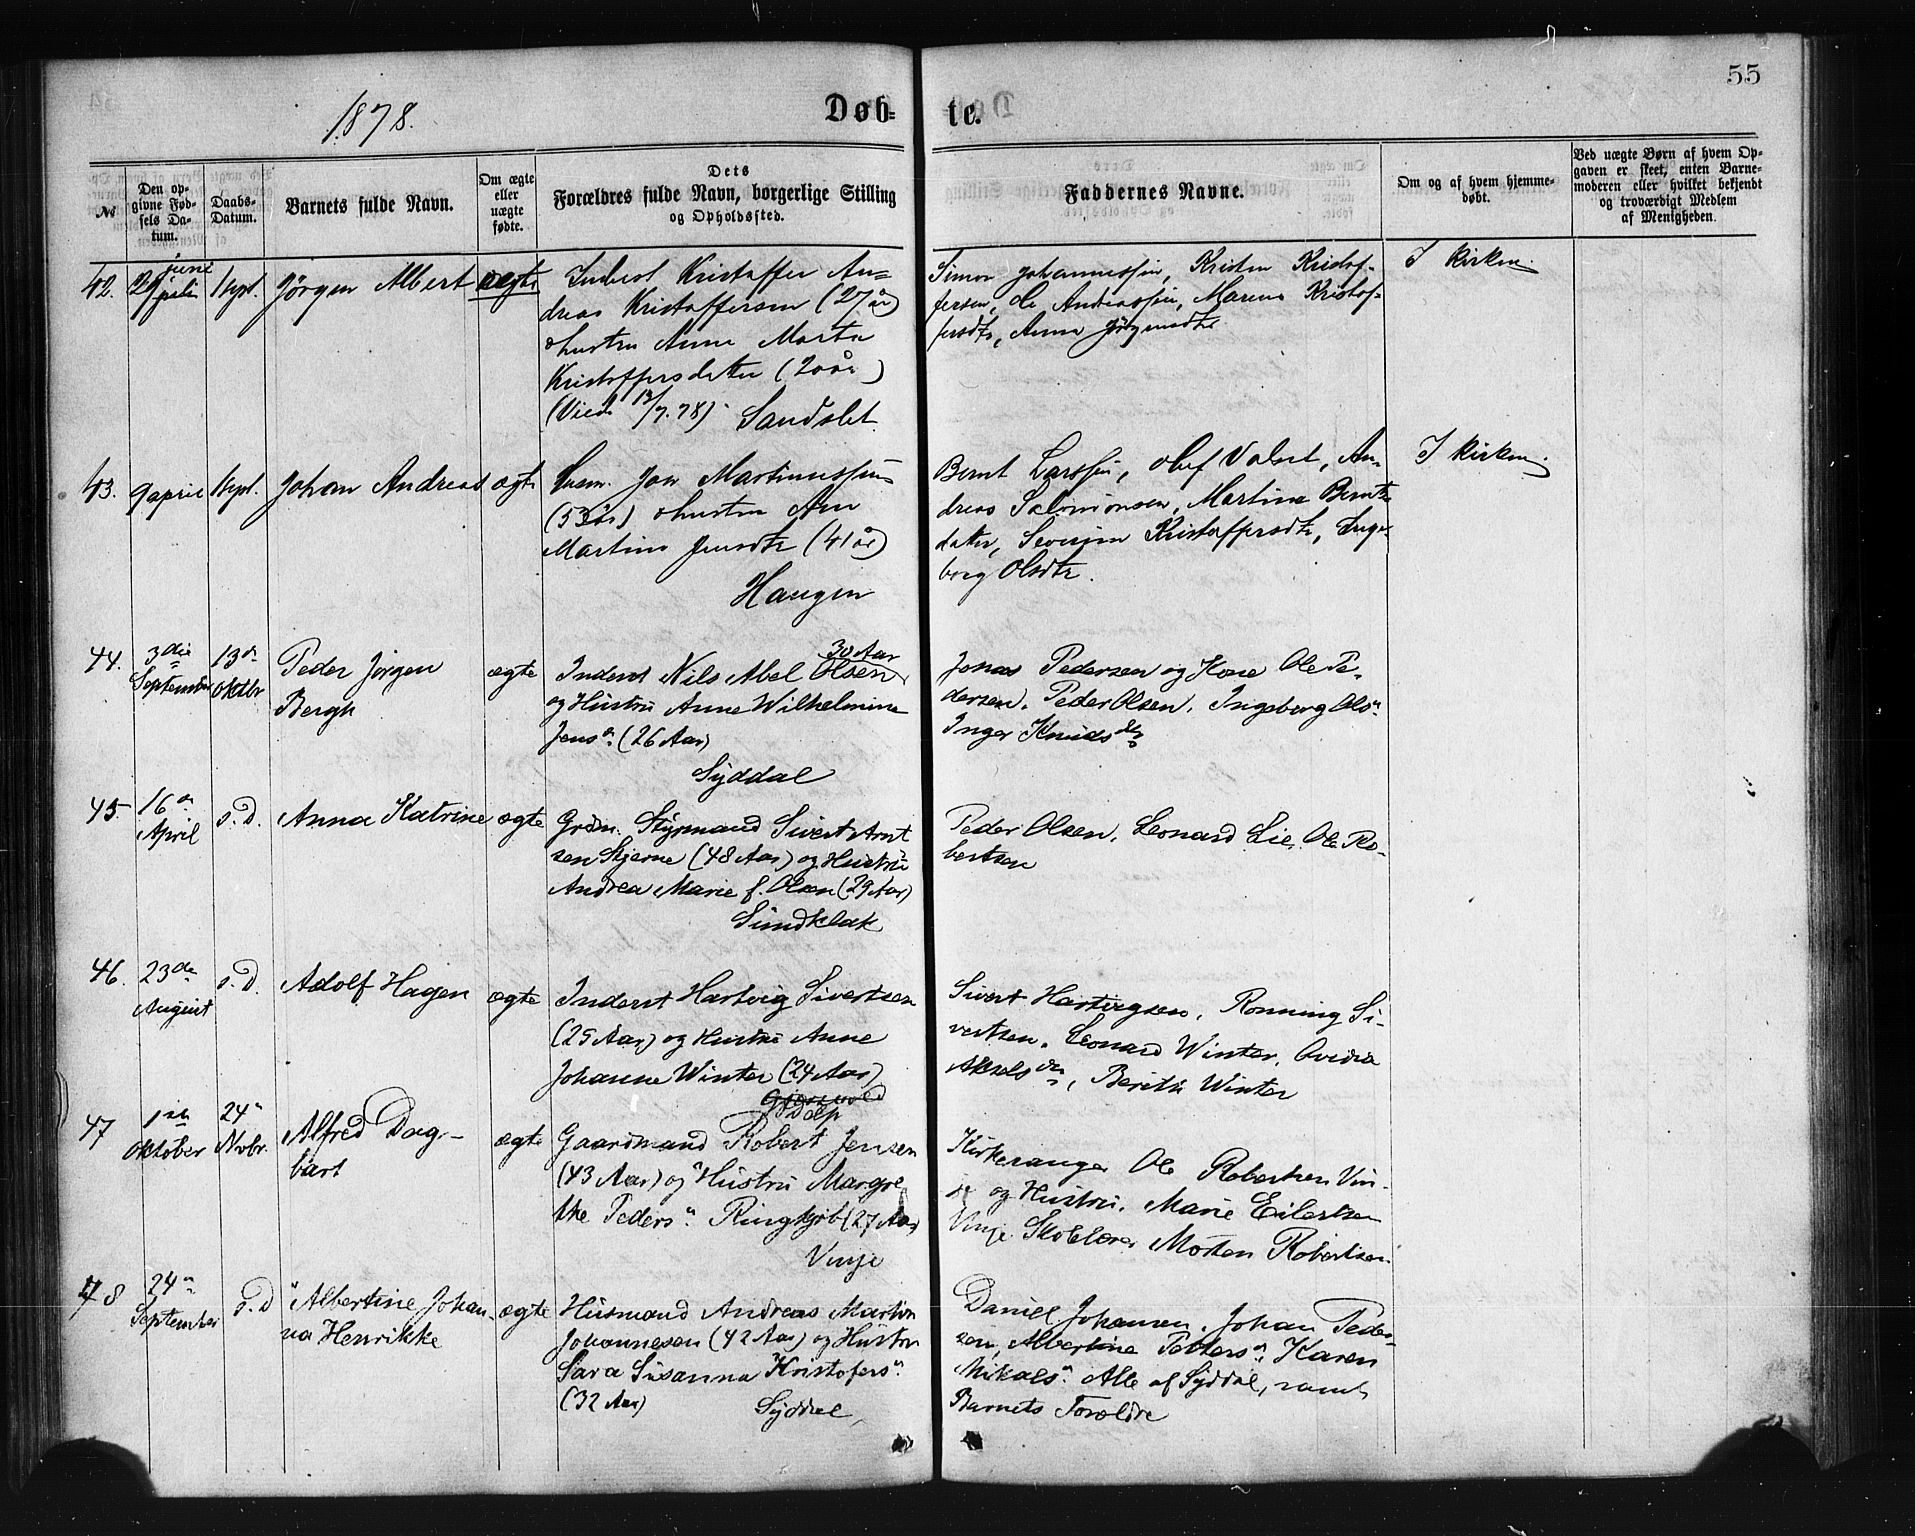 55
1878.
Døb=
te.
№
Den op-
givne Fød-
sels Da-
tum.
Daabs-
Datum.
Barnets fulde Navn.
Om ægte
eller
uægte
fødte.
Dets
Forældres fulde Navn, borgerlige Stilling
og Opholdssted.
Faddernes Navne.
Om og af hvem hjemme-
døbt.
Ved uægte Børn af hvem Op-
gaven er skeet, enten Barne-
moderen eller hvilket bekjendt
og troværdigt Medlem
af Menigheden.
42.
29 juni
1 Sept.
Jørgen Albert
ægte
Inderst Kristoffer An-
dreas Kristoffersen (27 år)
o hustru Anne Marta
Kristoffersdatter (20 år)
(Viede 13/7.78) Sandslet
Simon Johannessen, Kristen Kristof-
fersen, Ole Andreassen, Maren Kristof-
fersdtr, Anna Jørgensdtr
I kirken.
43.
9 april
1 Sept.
Johan Andreas
ægte
Husm. Jon Martinussen
(53 år) o hustru Ane
Martine Jensdtr (41 år)
Haugen
Bernt Larssen, Olef Valset, An-
dreas Salomonsen, Martina Bernts-
datter, Severine Kristoffersdtr, Inge-
borg Olsdtr.
I kirken.
44.
3die
September
13de
Oktbr
Peder Jørgen
Bergh
ægte
Inderst Nils Abel Olsen 30 Aar
og Hustru Anne Wilhelmine
Jensdr (26 Aar)
Syddal
Jonas Pedersen og Kone Ole Pe-
dersen, Peder Olsen, Ingeborg Olsdr
Inger Knudsdtr
45.
16de
April
s. D.
Anna Katrine
ægte
Grdm. Styrmand Sivert Arnt
sen Stjerne (48 Aar) og Hustru
Andrea Marie f. Olsen (29 Aar)
Sundklak
Peder Olsen, Leonard Lie, Ole Ro-
bertsen
46.
23de
August
s. D.
Adolf Hagen
ægte
Inderst Hartvig Sivertsen
(25 Aar) og Hustru Anne
Johanne Winter (24 Aar)
Sivert Hartvigsen, Rønning Si-
vertsen, Leonard Winter, Ovidia
Akselsdtr, Berith Winter
47
1ste
Oktober
24de
Novbr.
Alfred Dag-
bart
ægte
Gaardmand Robert Jensen
(43 Aar) og Hustru Margre
the Pedersdr Ringkjøb (27 Aar)
Vinje
Kirkesanger Ole Robertsen Vin-
je og Hustru, Marie Eilertsen
Vinje Skolelærer Morten Robertsen
48
24de
September
s. D
Albertine Johan
na Henrikke
ægte
Husmand Andreas Martin
Johannesen (42 Aar) og Hustru
Sara Susanna Kristofersdr
(32 Aar)
Syddal
Daniel Johansen, Johan Peder-
sen, Albertine Pettersdr, Karen
Mikalsdr Alle af Syddal, samt
Barnets Forældre